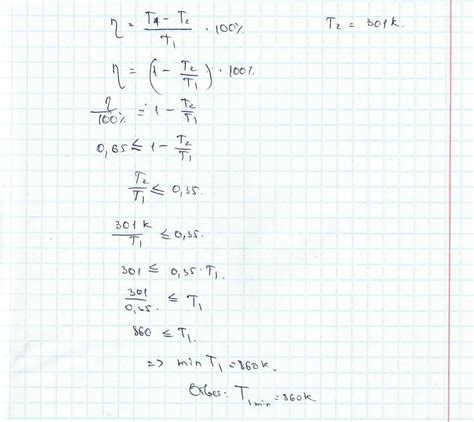 η = (T1 − T2)/T1 · 100%
T2 = 301K.
η = (1 − T2/T1) · 100%
η/100% = 1 − T2/T1
0,65 ≤ 1 − T2/T1
T2/T1 ≤ 0,35.
301K/T1 ≤ 0,35.
301 ≤ 0,35 · T1.
301/0,35. ≤ T1
860 ≤ T1.
=> min T1 = 860K.
Ответ: T1min = 860K.